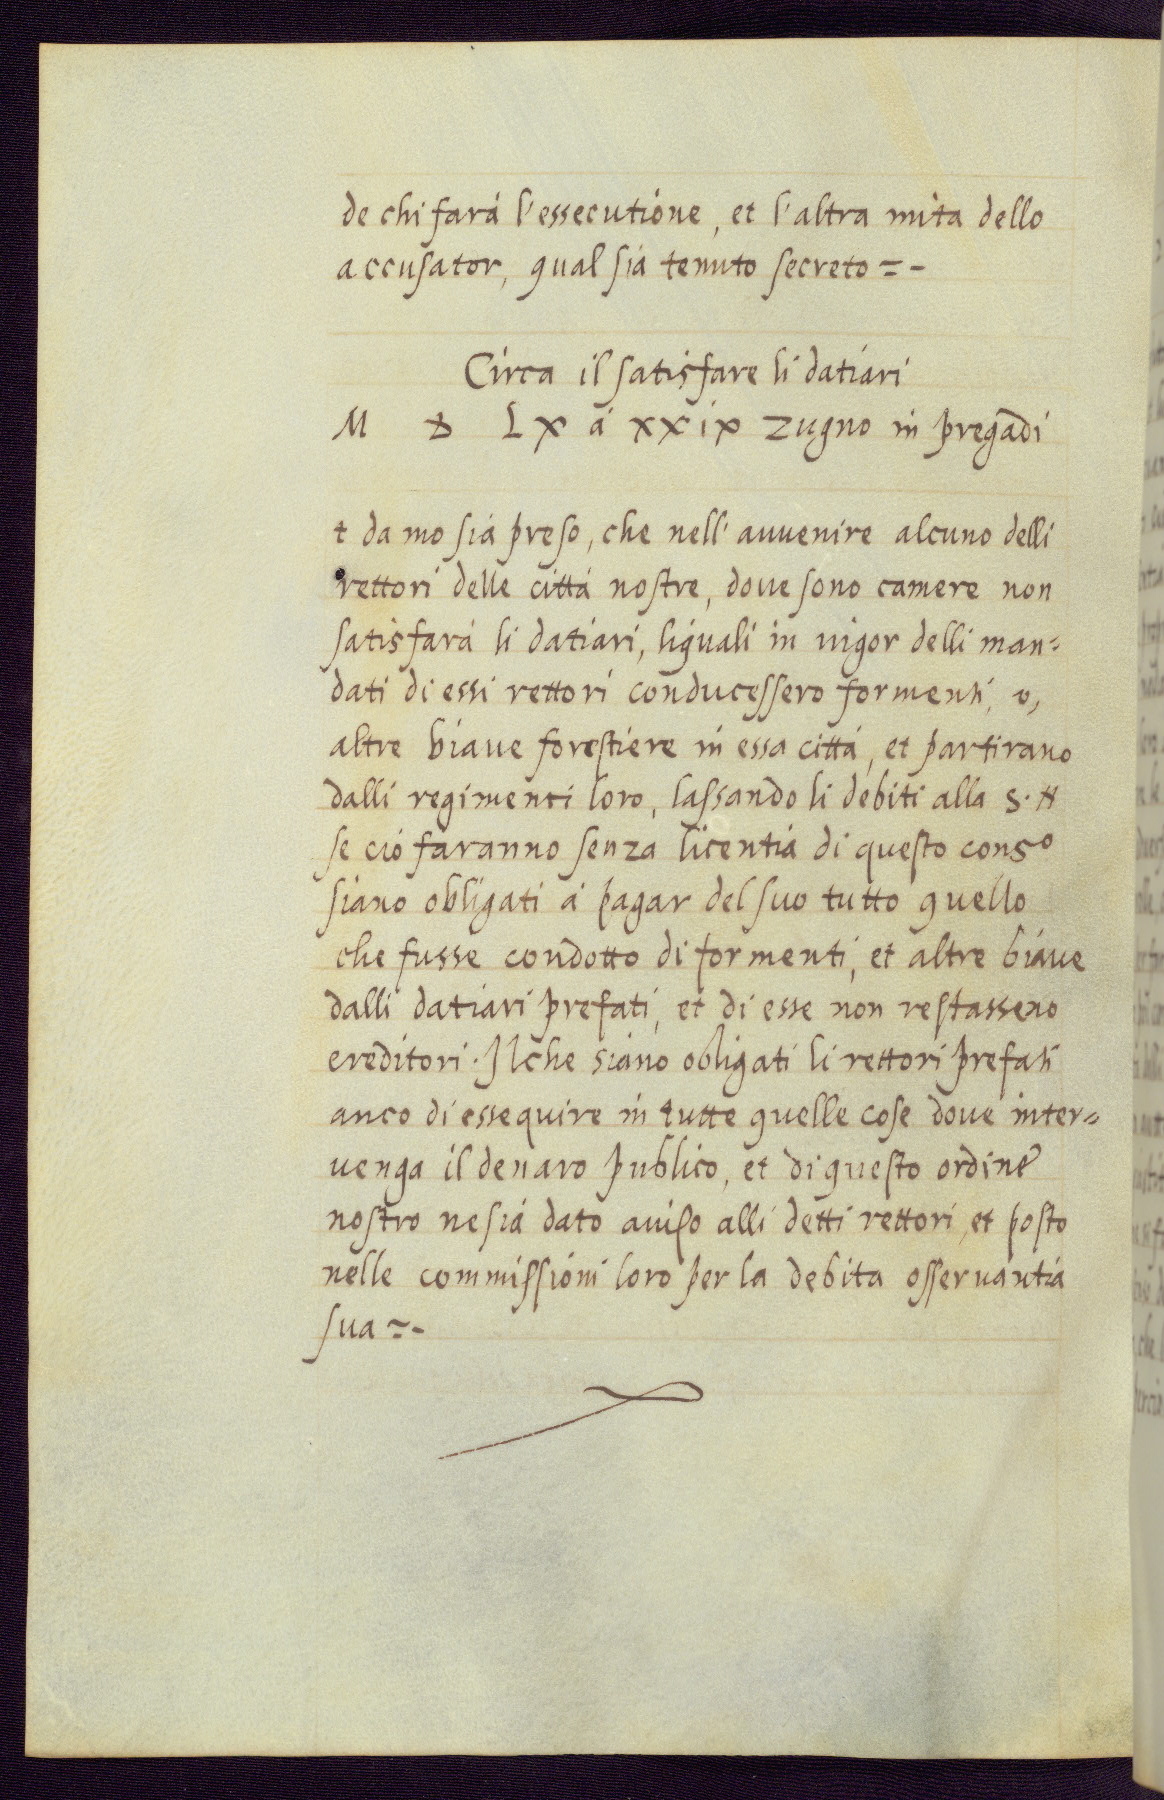 de chi fará l'essecutione, et l'altra mita dello
accusator, qual sia tenuto secreto =-
Circa il satisfare li datiari
M D LX á xxix Zugno in pregadi
t da mo sia preso, che nell' auuenire alcuno delli
rettori delle cittá nostre, doue sono camere non
satisfará li datiari, liquali in uigor delli man=
dati di essi rettori conducessero formenti, o,
altre biaue forestiere in essa cittá, et partirano
dalli regimenti loro, lassando li debiti alla S. N
se ció faranno senza licentia di questo conso
siano obligati á pagar del suo tutto quello
che fusse condotto di formenti, et altre biaue
dalli datiari prefati, et di esse non restasseno
ereditori. Ilche siano obligati li rettori prefati
anco di essequire in tutte quelle cose doue inter=
uenga il denaro publico, et di questo ordine
nostro ne sia dato auiso alli detti rettori, et posto
nelle commissioni loro per la debita osseruantia
sua =-